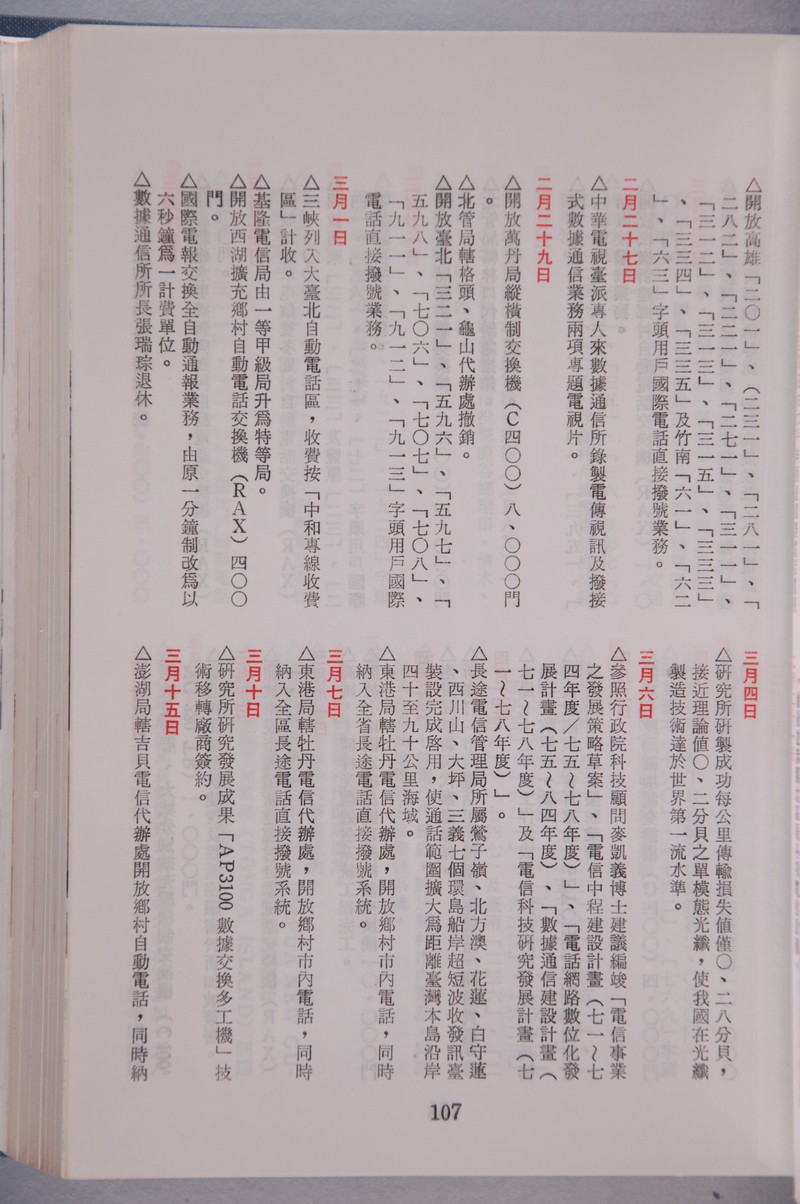 △開放高雄「二〇一」、(二三一」、「二八一」、「
二八二」、「二二一」、「二七一」、「三一一」、
「三一二」、「三一三」、「三一五」、「三三三」
、「三三四」、「三三五」及竹南「六一」、「六二
」、「六三」字頭用戶國際電話直接撥號業務。
二月二十七日
△中華電視臺派專人來數據通信所錄製電傳視訊及撥接
式數據通信業務兩項專題電視片。
二月二十九日
△開放萬丹局縱橫制交換機(C四〇〇)八、〇〇〇門
。
△北管局轄格頭、龜山代辦處撤銷。
△開放臺北「三二一」、「五九六」、「五九七」、「
五九八」、「七〇六」、「七〇七」、「七〇八」、
「九一一」、「九一二」、「九一三」字頭用戶國際
電話直接撥號業務。
三月一日
△三峽列入大臺北自動電話區,收費按「中和專線收費
區」計收。
△基隆電信局由一等甲級局升爲特等局。
△開放西湖擴充鄉村自動電話交換機(RAX)四〇〇
門。
△國際電報交換全自動通報業務,由原一分鐘制改爲以
六秒鐘爲一計費單位。
△數據通信所所長張瑞琮退休。
三月四日
△研究所研製成功每公里傳輸損失値僅〇、二八分貝,
接近理論値〇、二分貝之單模態光纖,使我國在光纖
製造技術達於世界第一流水準。
三月六日
△參照行政院科技顧問麥凱義博士建議編竣「電信事業
之發展策略草案」、「電信中程建設計畫(七一~七
四年度/七五~七八年度)」、「電話網路數位化發
展計畫(七五~八四年度)、「數據通信建設計畫(
七一~七八年度)」及「電信科技研究發展計畫(七
一~七八年度)」。
△長途電信管理局所屬鶯子嶺、北方澳、花蓮、白守蓮
、西川山、大坪、三義七個環島船岸超短波收發訊臺
裝設完成啓用,使通話範圍擴大爲距離臺灣本島沿岸
四十至九十公里海域。
△東港局轄牡丹電信代辦處,開放鄉村市內電話,同時
納入全省長途電話直接撥號系統。
三月七日
△東港局轄牡丹電信代辦處,開放鄉村市內電話,同時
納入全區長途電話直接撥號系統。
三月十日
△研究所研究發展成果「AP3100數據交換多工機」技
術移轉廠商簽約。
三月十五日
△澎湖局轄吉貝電信代辦處開放鄉村自動電話,同時納
107